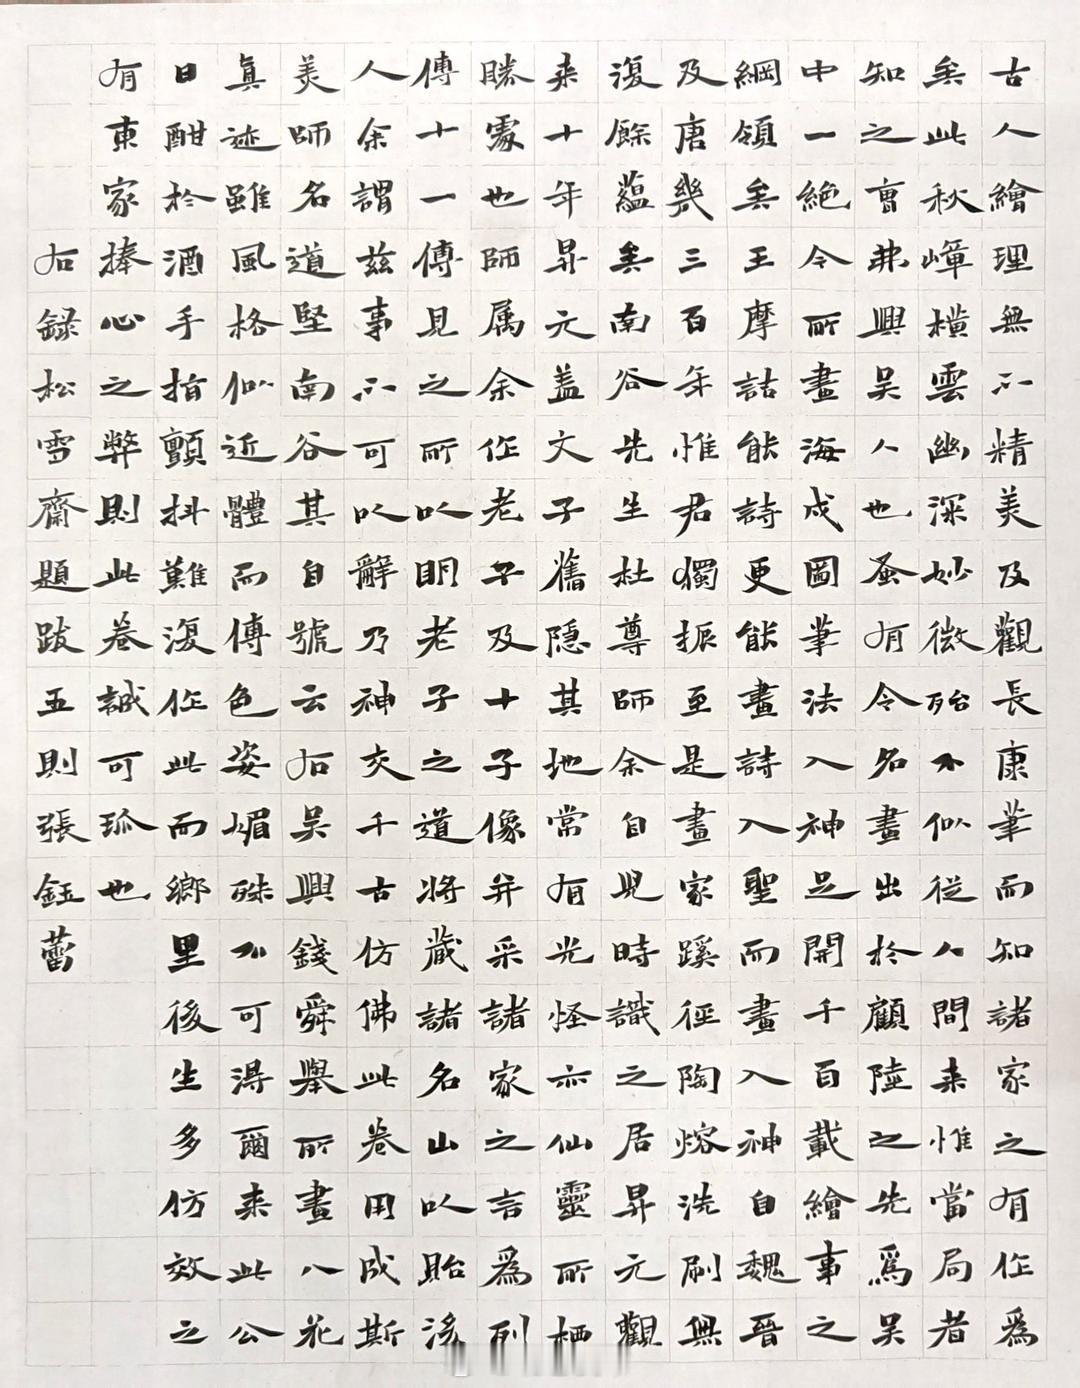 古人繪理無不精美及觀長康筆而知諸家之有作爲
矣此秋嶂橫雲幽深妙微殆不似從人間来惟當局者
知之會弗興吴人也蚤有令名畫出於顧陸之先爲吴
中一絶今所畫海戍圖筆法入神足開千百載繪事之
綱領矣王摩詰能詩更能畫詩入聖而畫入神自魏晉
及唐幾三百年惟君獨振至是畫家蹊徑陶熔洗刷無
復餘蘊矣南谷先生杜尊師余自兒時識之居昇元觀
来十年昇元蓋文子舊隱其地常有光怪亦仙靈所栖
勝處也師属余作老子及十子像并采諸家之言爲列
傳十一傳見之所以明老子之道將藏諸名山以貽後
人余謂茲事不可以辭乃神交千古仿佛此卷用成斯
美師名道堅南谷其自號云右吴興錢舜舉所畫八花
真迹雖風格似近體而傅色姿媚殊不可得爾来此公
日酣於酒手指顫抖難復作此而鄉里後生多仿效之
有東家捧心之弊則此卷誠可珎也
右録松雪齋題跋五則張鈺蕾